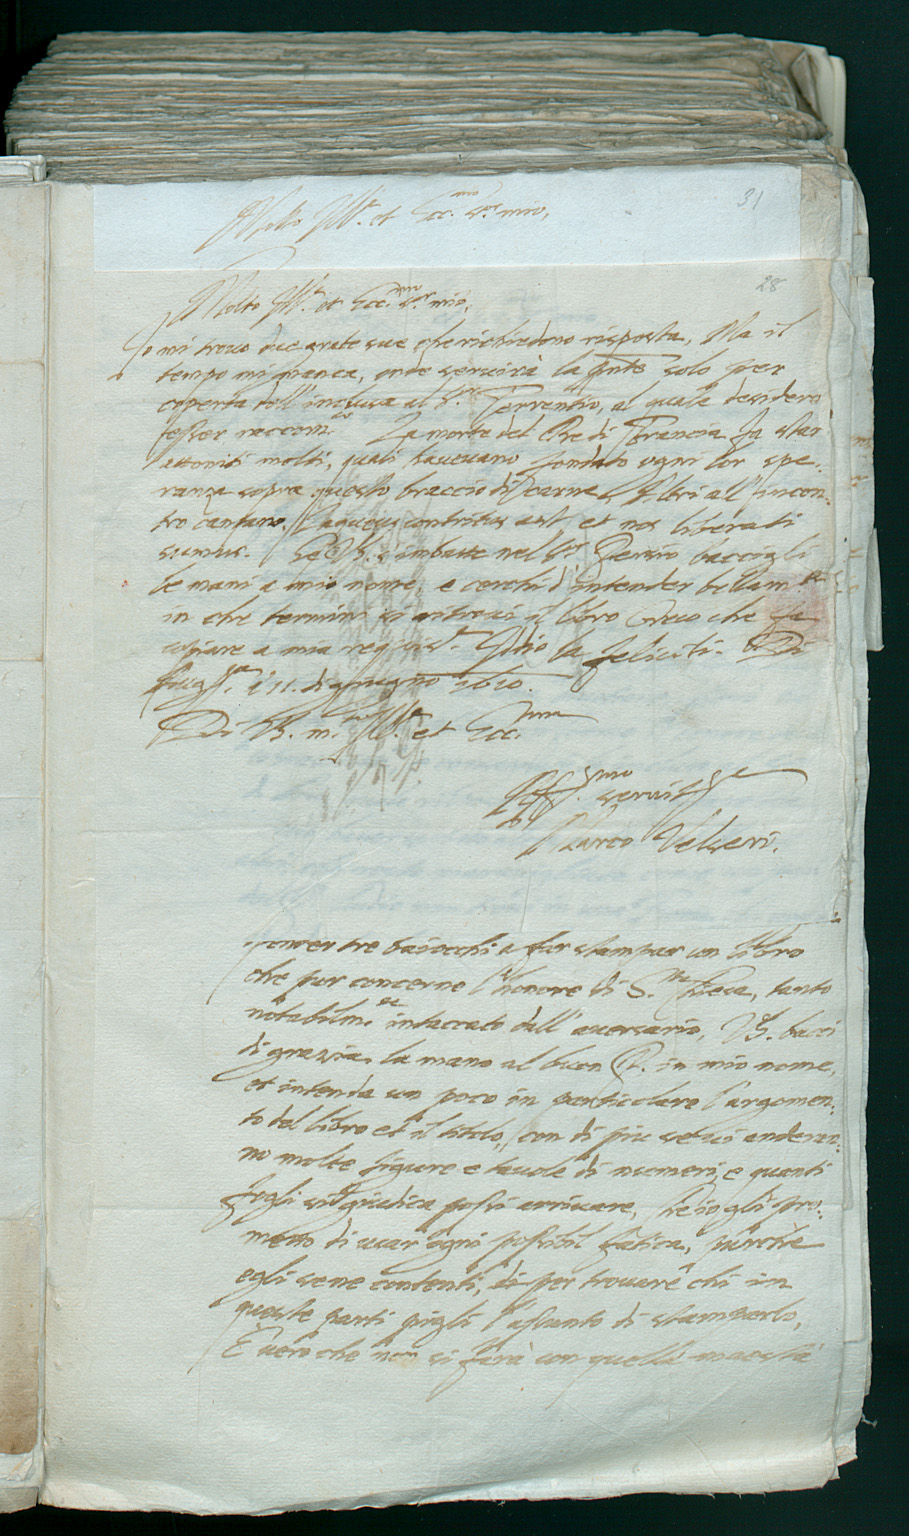 31
Molto Ill.re et Ecc.mo S.or mio,
28
Molto Ill.re et Ecc.mo S.or mio,
Io mi trovo due grate sue che richiedono risposta, Ma il
tempo mi manca, onde servirà la p̃nte solo per
coperta dell'inclusa al S.r Terrentio, al quale desidero
esser raccom.to La morte del Re di Francia fa star
attoniti molti, quali havevano fondato ogni lor spe-
ranza sopra questo braccio di carne, Altri all'incon-
tro cantano, Laqueus contritus est, et nos liberati
sumus. Se V.S. s'imbatte nel S.or Persio baccigli
le mani a mio nome, e cerchi d'intender bellam.te
in che termini si ritrovi il libro Greco che fa
copiare a mia requis.ne Iddio la feliciti. Di
Aug.ta i 11. di giugno 1610.
Di V.S. m. Ill.re et Ecc.ma
Aff.mo servit.re
Marco Velseri.
spender tre baiocchi a far stampar un libro
che pur concerne l'honore di S.ta Chiesa, tanto
notabilm.te intaccato dall'aversario, V.S. bacci
di gratia la mano al buon P. in mio nome,
et intenda un poco in particolare l'argomen-
to del libro et il titolo, con di piu se vi anderan-
no molte figure e tavole di numeri, e quanti
fogli si giudica possi arrivare, Se io gli pro-
metto di usar ogni possibil fatica, purche
egli sene contenti, di per trovare chi in
queste parti pigli l'assunto di stamparlo,
E vero che non si farà con quella maestà